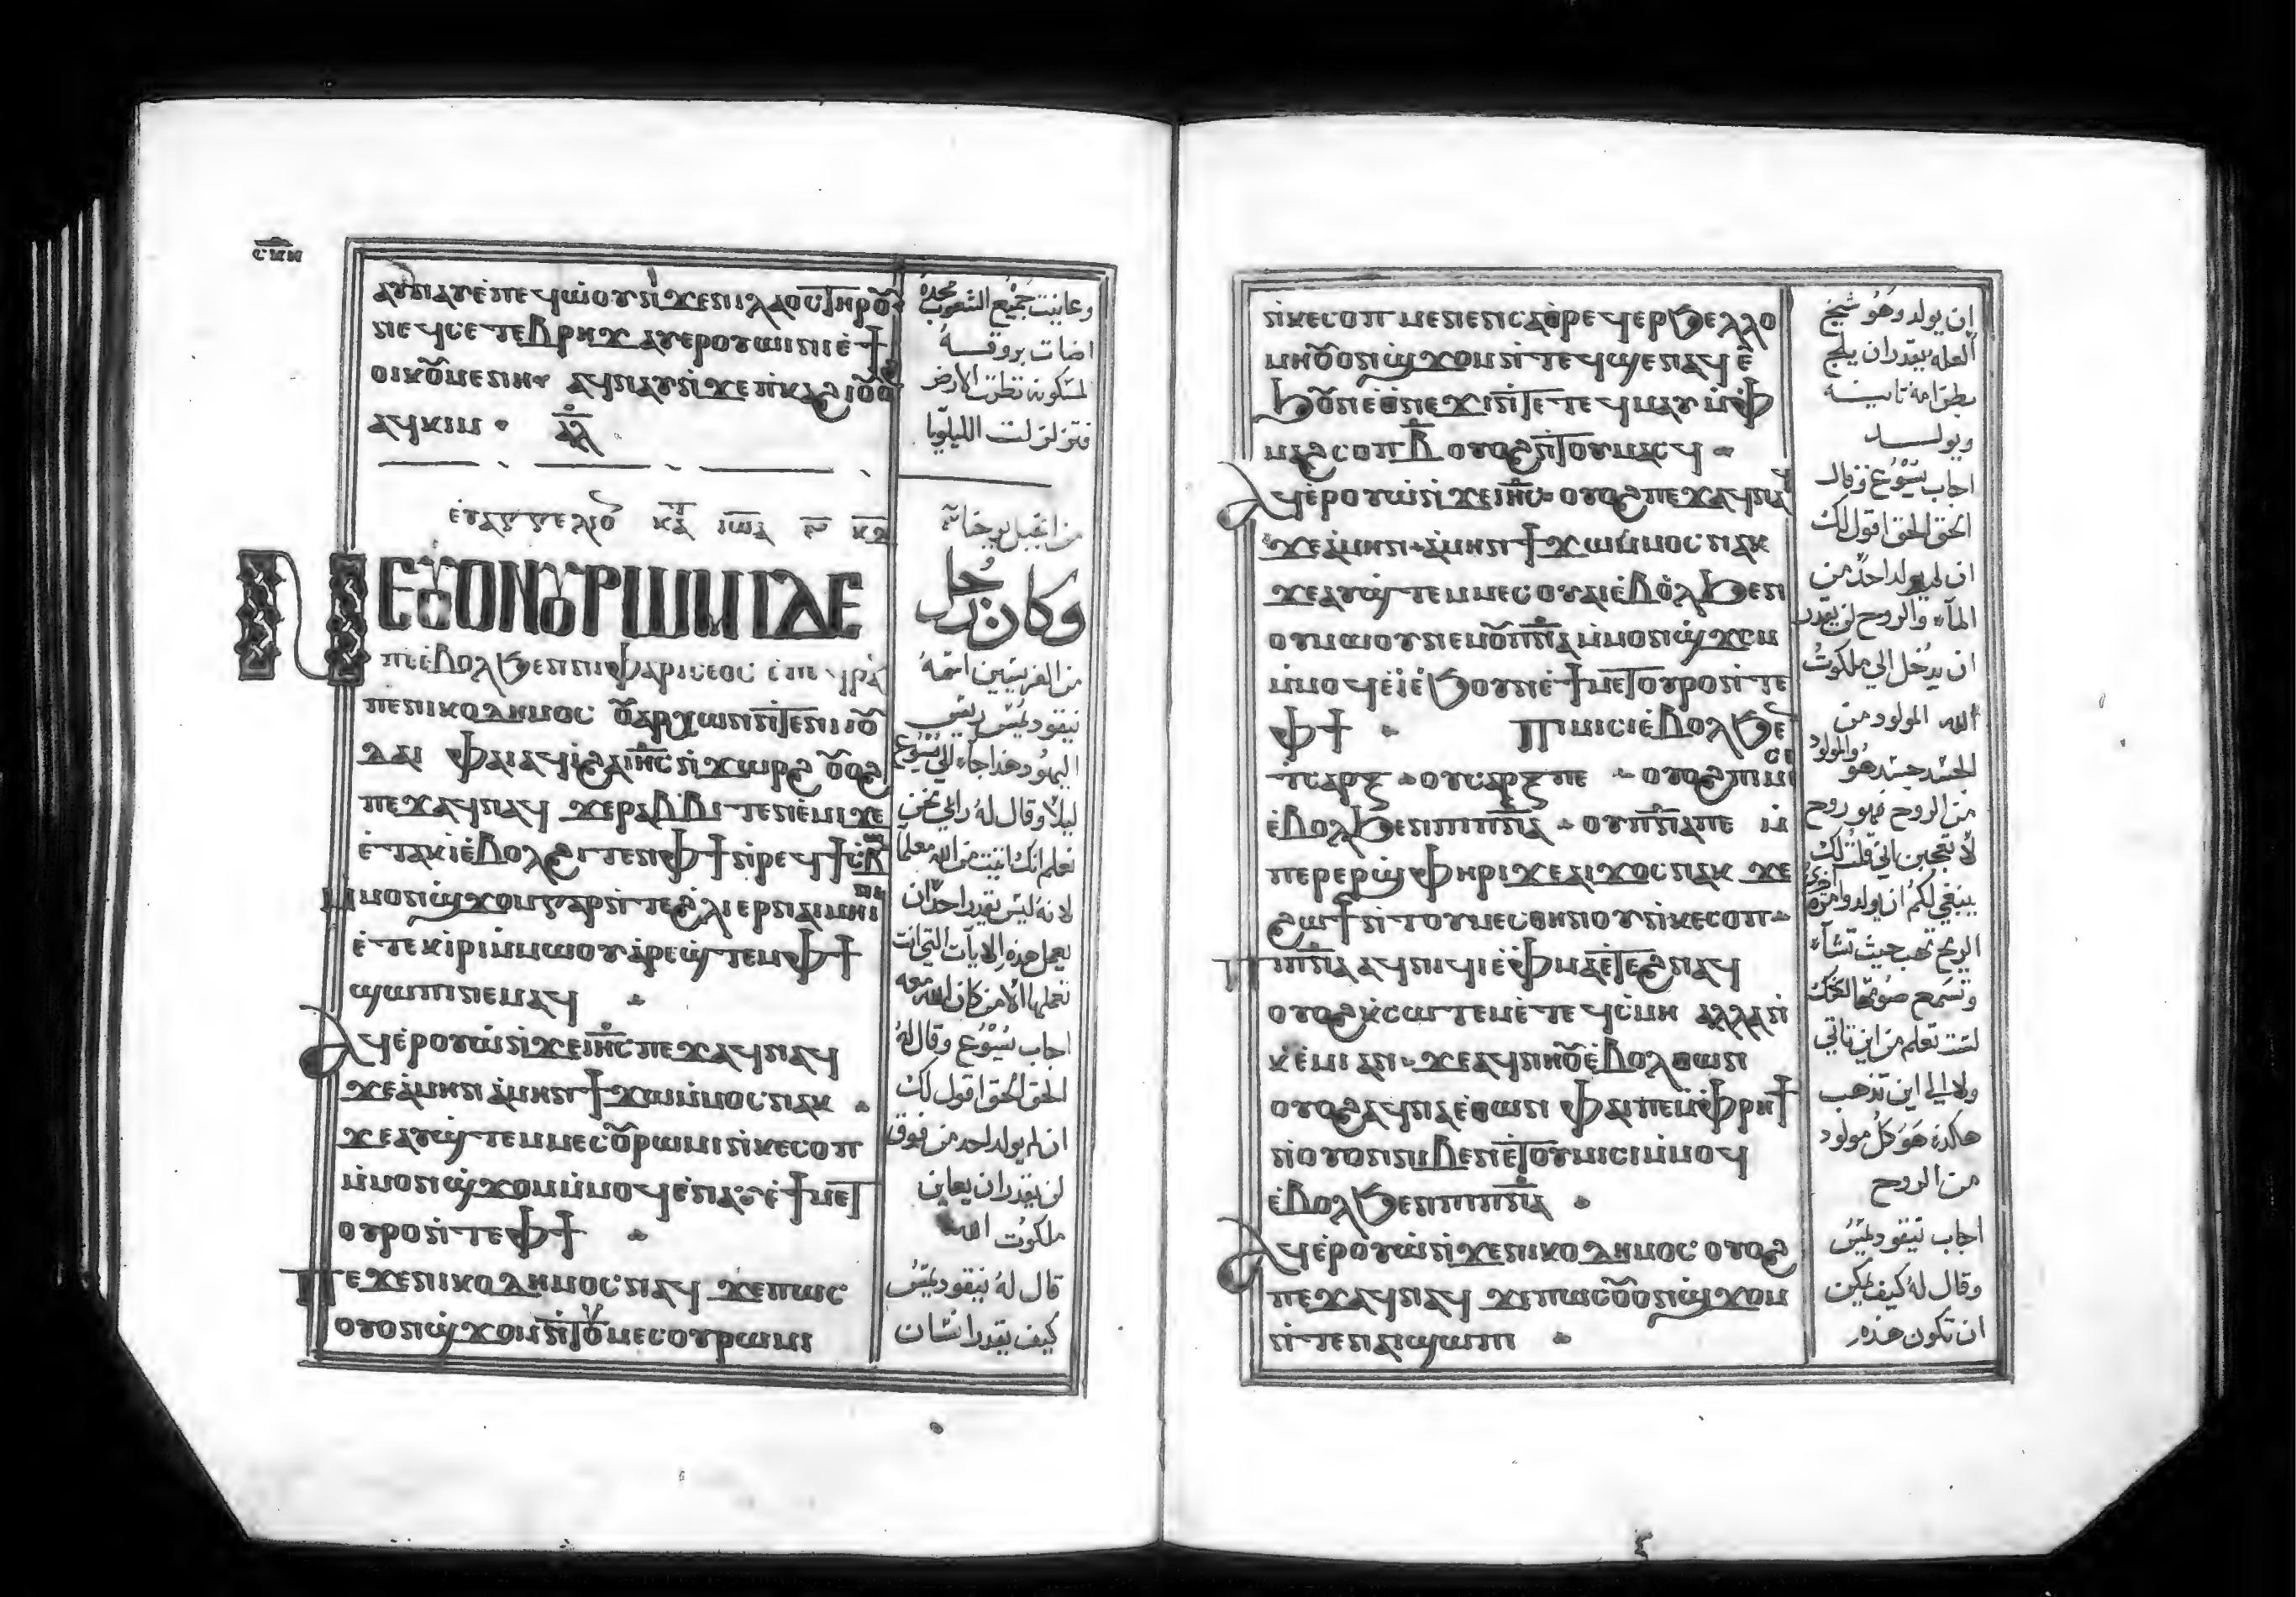 ⲥⲙⲏ
ⲁⲩⲛⲁⲩⲉ̀ⲡⲉϥⲱ̀ⲟⲩⲛ̀ϫⲉⲛⲓⲗⲁⲟⲥⲧⲏⲣⲟⲩ
ⲛⲉϥⲥⲉⲧⲉⲃⲣⲏϫ ⲁⲩⲉⲣⲟⲩⲱⲓⲛⲓⲉ̀ϯ
ⲟⲓⲕⲟⲩⲙⲉⲛⲏ ⲁϥⲛⲁⲩⲛ̀ϫⲉⲡ̀ⲕⲁϩⲓⲟⲩⲟϩ
ⲁϥⲕⲓⲙ ⲁⲗ
ⲉⲩⲁⲅⲅⲉⲗⲓⲟⲩ ⲕⲁⲧⲁ ⲓⲱⲁ ⲅ ⲕⲁ
ⲛⲉⲟⲩⲟⲛⲟⲩⲣⲱⲙⲓⲇⲉ
ⲡⲉⲉ̀ⲃⲟⲗϧⲉⲛⲛⲓⲫⲁⲣⲓⲥⲉⲟⲥ ⲉ̀ⲡⲉϥⲣⲁⲛ
ⲡⲉⲛⲓⲕⲟⲇⲏⲙⲟⲥ ⲟⲩⲁⲣⲭⲱⲛⲛ̀ⲧⲉⲛⲓⲓⲟⲩ
ⲇⲁⲓ ⲫⲁⲓⲁϥⲓ̀ϩⲁⲓⲏⲥⲛ̀ϫⲱⲣϩ ⲟⲩⲟϩ
ⲡⲉϫⲁϥⲛⲁϥ ϫⲉⲣⲁⲃⲃⲓ ⲧⲉⲛⲉ̀ⲙⲓϫⲉ
ⲉ̀ⲧⲁⲕⲓ̀ⲉ̀ⲃⲟⲗϩⲓⲧⲉⲛⲫϯⲛ̀ⲣⲉϥϯⲥⲃⲱ
ⲙ̀ⲙⲟⲛϣϫⲟⲙⲅⲁⲣⲛ̀ⲧⲉϩⲗⲓⲉⲣⲛⲁⲓⲙⲏⲓⲛⲓ
ⲉ̀ⲧⲉⲕⲓ̀ⲣⲓⲙ̀ⲙⲱⲟⲩ ⲁ̀ⲣⲉϣⲧⲉⲙⲫϯ
ϣⲱⲡⲓⲛⲉⲙⲁϥ
ⲁϥⲉ̀ⲣⲟⲩⲱ̀ⲛ̀ϫⲉⲓⲏⲥⲡⲉϫⲁϥⲛⲁϥ
ϫⲉⲁ̀ⲙⲏⲛ ⲁ̀ⲙⲏⲛϯϫⲱⲙ̀ⲙⲟⲥⲛⲁⲕ
ϫⲉⲁⲩϣⲧⲉⲙⲙⲉⲥⲟⲩⲣⲱⲙⲓⲛ̀ⲕⲉⲥⲟⲡ
ⲙ̀ⲙⲟⲛϣϫⲟⲙⲙ̀ⲙⲟϥⲉ̀ⲛⲁⲩⲉ̀ϯⲙⲉⲧ
ⲟⲩⲣⲟⲛ̀ⲧⲉⲫϯ
ⲡⲉϫⲉⲛⲓⲕⲟⲇⲏⲙⲟⲥⲛⲁϥ ϫⲉⲡⲱⲥ
ⲟⲩⲟⲛϣϫⲟⲙⲛ̀ⲧⲟⲩⲙⲉⲥⲟⲩⲣⲱⲙⲓ
وعاينت جميع الشعوب مجده
اضات بروقه
المسكونه نظرت الارض
فتزلزلت الليلويا
من انجيل يوحنا
وكان رجل
من الفريسيين اسمه
نيقوديمس رييس
اليهود هذا جاء الي يسوع
ليلا وقال له رابي نحن
نعلم انك اتيت من الله معلما
لانه ليس يقدر احد ان
يعمل هذه الايات التي انت
تعملها الا من كان الله معه
اجاب يسوع وقال له
الحق الحق اقول لك
ان لم يولد احد من فوق
لن يقدر ان يعاين
ملكوت الله
قال له نيقوديمس
كيف يقدر انسان
ⲛ̀ⲕⲉⲥⲟⲡ ⲙⲉⲛⲉⲛⲥⲁⲑⲣⲉϥⲉⲣϧⲉⲗⲗⲟ
ⲙⲏⲟⲩⲟⲛϣϫⲟⲙ ⲛ̀ⲧⲉϥϣⲉⲛⲁϥ ⲉ̀
ϧⲟⲩⲛⲉ̀ⲑⲛⲉϫⲓⲛ̀ⲧⲉⲧⲉϥⲙⲁⲩ ⲙ̀ⲫ
ⲙⲁϩⲥⲟⲡⲃ ⲟⲩⲟϩⲛ̀ⲧⲟⲩⲙⲁⲥϥ
ⲁϥⲉ̀ⲣⲟⲩⲱ̀ⲛ̀ϫⲉⲓⲏⲥ ⲟⲩⲟϩⲡⲉϫⲁϥⲛⲁϥ
ϫⲉⲁ̀ⲙⲏⲛ ⲁ̀ⲙⲏⲛϯϫⲱⲙ̀ⲙⲟⲥⲛⲁⲕ
ϫⲉⲁⲩϣⲧⲉⲙⲙⲉⲥⲟⲩⲁⲓⲉ̀ⲃⲟⲗϧⲉⲛ
ⲟⲩⲙⲱⲟⲩⲛⲉⲙⲟⲩⲡⲛⲁⲙ̀ⲙⲟⲛϣϫⲟⲙ
ⲙ̀ⲙⲟϥⲉ̀ⲓ̀ⲉ̀ϧⲟⲩⲛⲉ̀ϯⲙⲉⲧⲟⲩⲣⲟⲛ̀ⲧⲉ
ⲫϯ ⲡⲓⲙⲓⲥⲓⲉ̀ⲃⲟⲗϧⲉⲛ
ⲧⲥⲁⲣⲝ ⲟⲩⲥⲁⲣⲝⲡⲉ ⲟⲩⲟϩⲡⲓⲙⲓⲥⲓ
ⲉ̀ⲃⲟⲗϧⲉⲛⲡⲓⲡⲛⲁ ⲟⲩⲡⲛⲁⲡⲉ ⲙ̀
ⲡⲉⲣⲉⲣϣⲫⲏⲣⲓϫⲉⲁⲓϫⲟⲥⲛⲁⲕ ϫⲉ
ϩⲱϯⲛ̀ⲧⲟⲩⲙⲉⲥⲑⲏⲛⲟⲩⲛ̀ⲕⲉⲥⲟⲡ
ⲡⲓⲡⲛⲁ ⲁϥⲛⲓϥⲓⲉ̀ⲫⲙⲁⲉ̀ⲧⲉϩⲛⲁϥ
ⲟⲩⲟϩⲕ̀ⲥⲱⲧⲉⲙⲉ̀ⲧⲉϥⲥ̀ⲙⲏ ⲁⲗⲗⲁⲛ̀
ⲕⲉ̀ⲙⲓ ⲁⲛ ϫⲉⲁϥⲛⲏⲟⲩⲉ̀ⲃⲟⲗⲑⲱⲛ
ⲟⲩⲟϩⲁϥⲛⲁⲉ̀ⲑⲱⲛ ⲫⲁⲓⲡⲉⲙ̀ⲫⲣⲏϯ
ⲛ̀ⲟⲩⲟⲛⲛⲓⲃⲉⲛⲉ̀ⲧⲟⲩⲙⲓⲥⲓⲙ̀ⲙⲟϥ
ⲉ̀ⲃⲟⲗϧⲉⲛⲡⲓⲡⲛⲁ
ⲁϥⲉ̀ⲣⲟⲩⲱ̀ⲛ̀ϫⲉⲛⲓⲕⲟⲇⲏⲙⲟⲥ ⲟⲩⲟϩ
ⲡⲉϫⲁϥⲛⲁϥ ϫⲉⲡⲱⲥⲟⲩⲟⲛϣϫⲟⲙ
ⲛ̀ⲧⲉⲛⲁⲓϣⲱⲡⲓ
ان يولد وهو شيخ
العله يقدر ان يلج
بطن امه ثانيه
ويولد
اجاب يسوع وقال
الحق الحق اقول لك
ان لم يولد احد من
الماء والروح لن يقدر
ان يدخل الي ملكوت
الله المولود من
الجسد جسد هو والمولود
من الروح فهو روح
لا تعجبن اني قلت لك
ينبغي لكم ان يولدوا مره
الريح تهب حيث تشاء
وتسمع صوتها لكنك
لست تعلم من اين تاتي
ولا الي اين تذهب
هكذا هو كل مولود
من الروح
اجاب نيقوديمس
وقال له كيف يمكن
ان تكون هذه